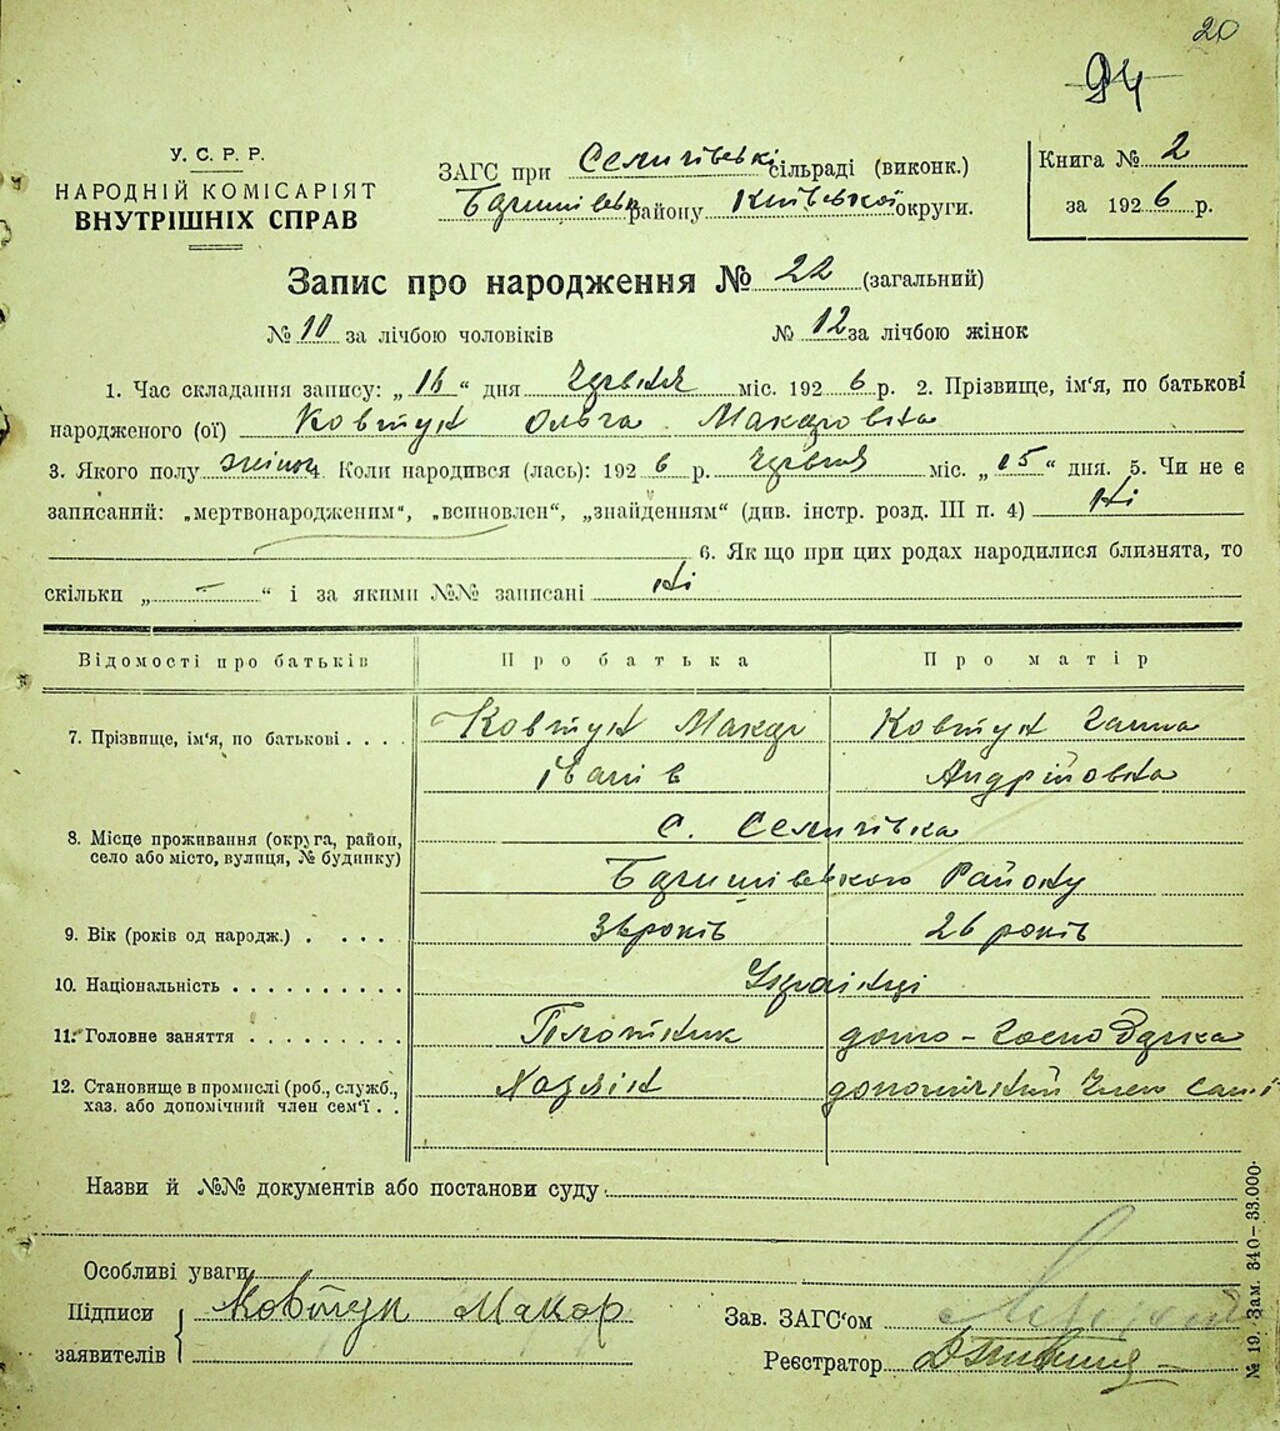 20
94
У. С. Р. Р.
НАРОДНІЙ КОМІСАРІЯТ
ВНУТРІШНІХ СПРАВ
ЗАГС при Семигівські сільраді (виконк.)
району Київської округи.
Книга № 2
за 1926 р.
Запис про народження № 22 (загальний)
№ 10 за лічбою чоловіків № 12 за лічбою жінок
1. Час складання запису: „16“ дня Червня міс. 1926 р. 2. Прізвище, ім‘я, по батькові
народженого (ої) Ковтун Ольга Макаровна
3. Якого полу жіноч 4. Коли народився (лась): 1926 р. Червня міс. „15“ дня. 5. Чи не є
записаний: „мертвонародженим“, „всиновлен“, „знайденням“ (див. інстр. розд. III п. 4) Ні
6. Як що при цих родах народилися близнята, то
скільки „ — “ і за якими №№ записані Ні
Відомості про батьків Про батька Про матір
7. Прізвище, ім‘я, по батькові . . . . Ковтун Макар Ковтун Ганна
Іванів Андрійовна
8. Місце проживання (округа, район, с. Семигівка
село або місто, вулиця, № будинку) Району
9. Вік (років од народж.) . . . . 36 років 26 років
10. Національність . . . . . . . . . . Українці
11. Головне заняття . . . . . . . . . Плотник домо-Господарка
12. Становище в промислі (роб., служб., Хазяїн допоміжний член сем'ї
хаз. або допомічний член сем‘ї . .
Назви й №№ документів або постанови суду
Особливі уваги
Підписи Ковтун Макар Зав. ЗАГС‘ом
заявителів Реєстратор
№ 19. Зам. 340–33.000.